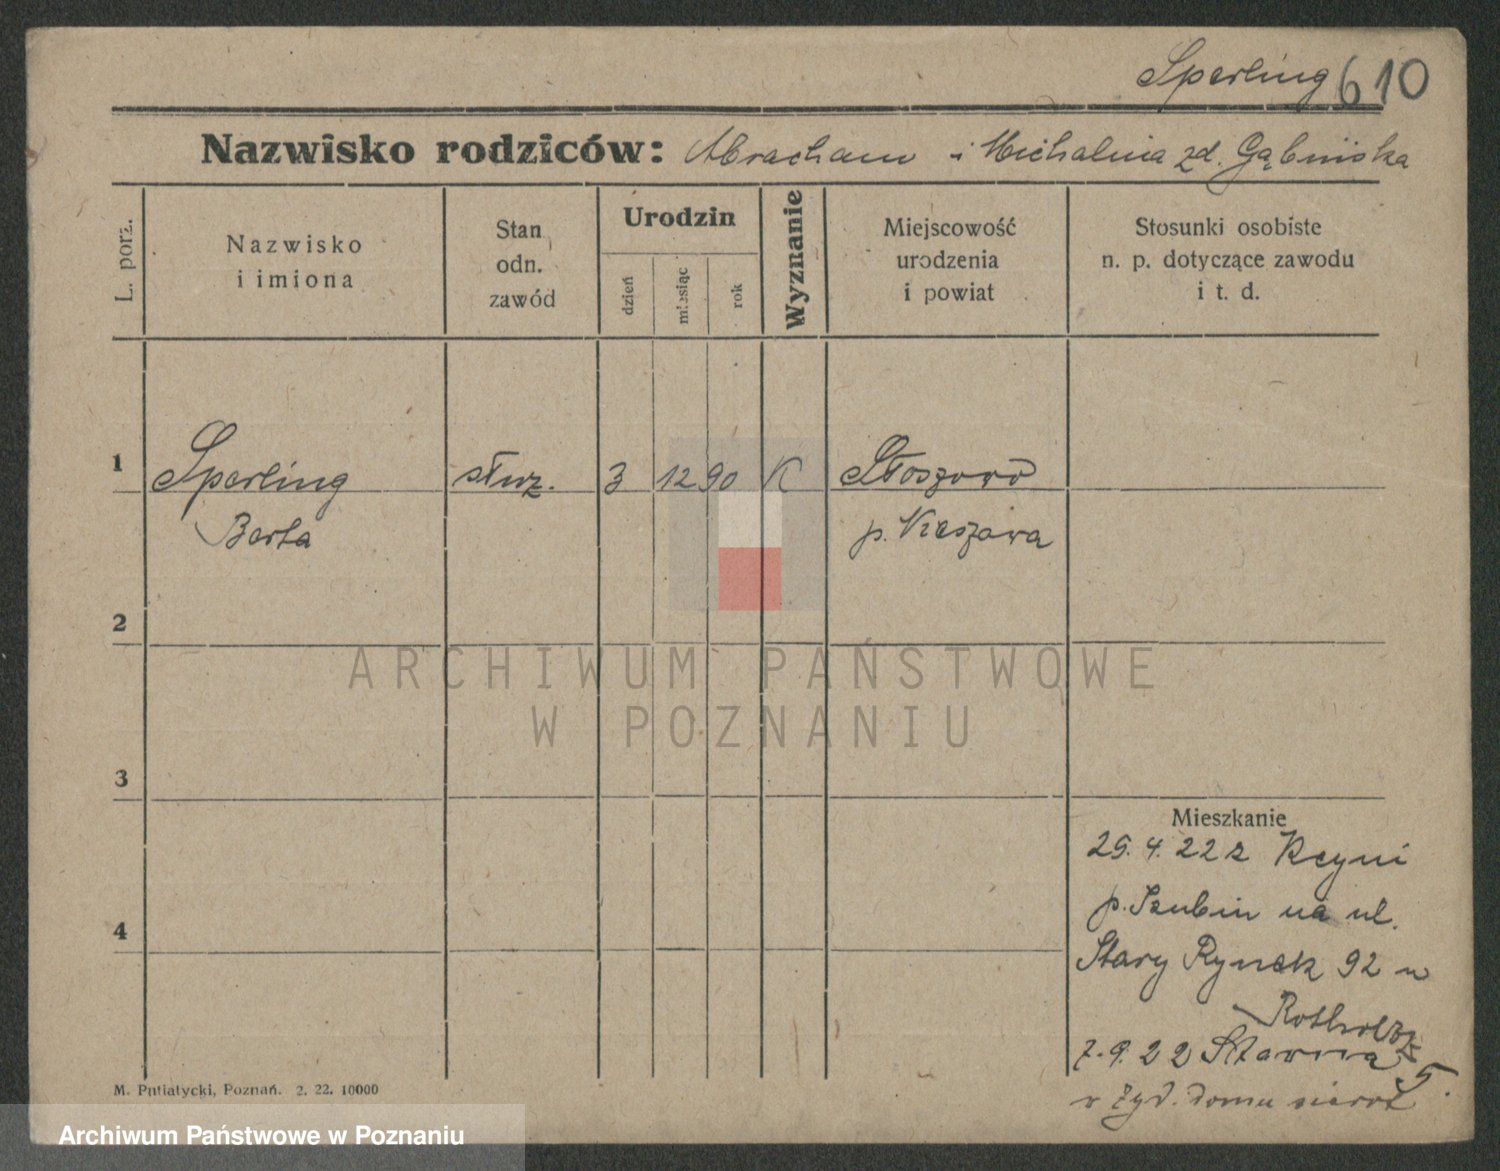 Sperling 610
Nazwisko rodziców: Abracham i Michalina zd. Gąbinska
L. porz.
Nazwisko
i imiona
Stan
odn.
zawód
Urodzin
dzień
miesiąc
rok
Wyznanie
Miejscowość
urodzenia
i powiat
Stosunki osobiste
n. p. dotyczące zawodu
i t. d.
1 Sperling służ. 3 12 90 K Słoszowo
Berta p. Nieszawa
2
3
4
Mieszkanie
25.4.22 z Kcyni
p. Szubin na ul.
Stary Rynek 92 u
7.9.22 Stawna 5.
w żyd. domu sierot
M. Putiatycki, Poznań. 2. 22. 10000
ARCHIWUM PAŃSTWOWE
W POZNANIU
Archiwum Państwowe w Poznaniu